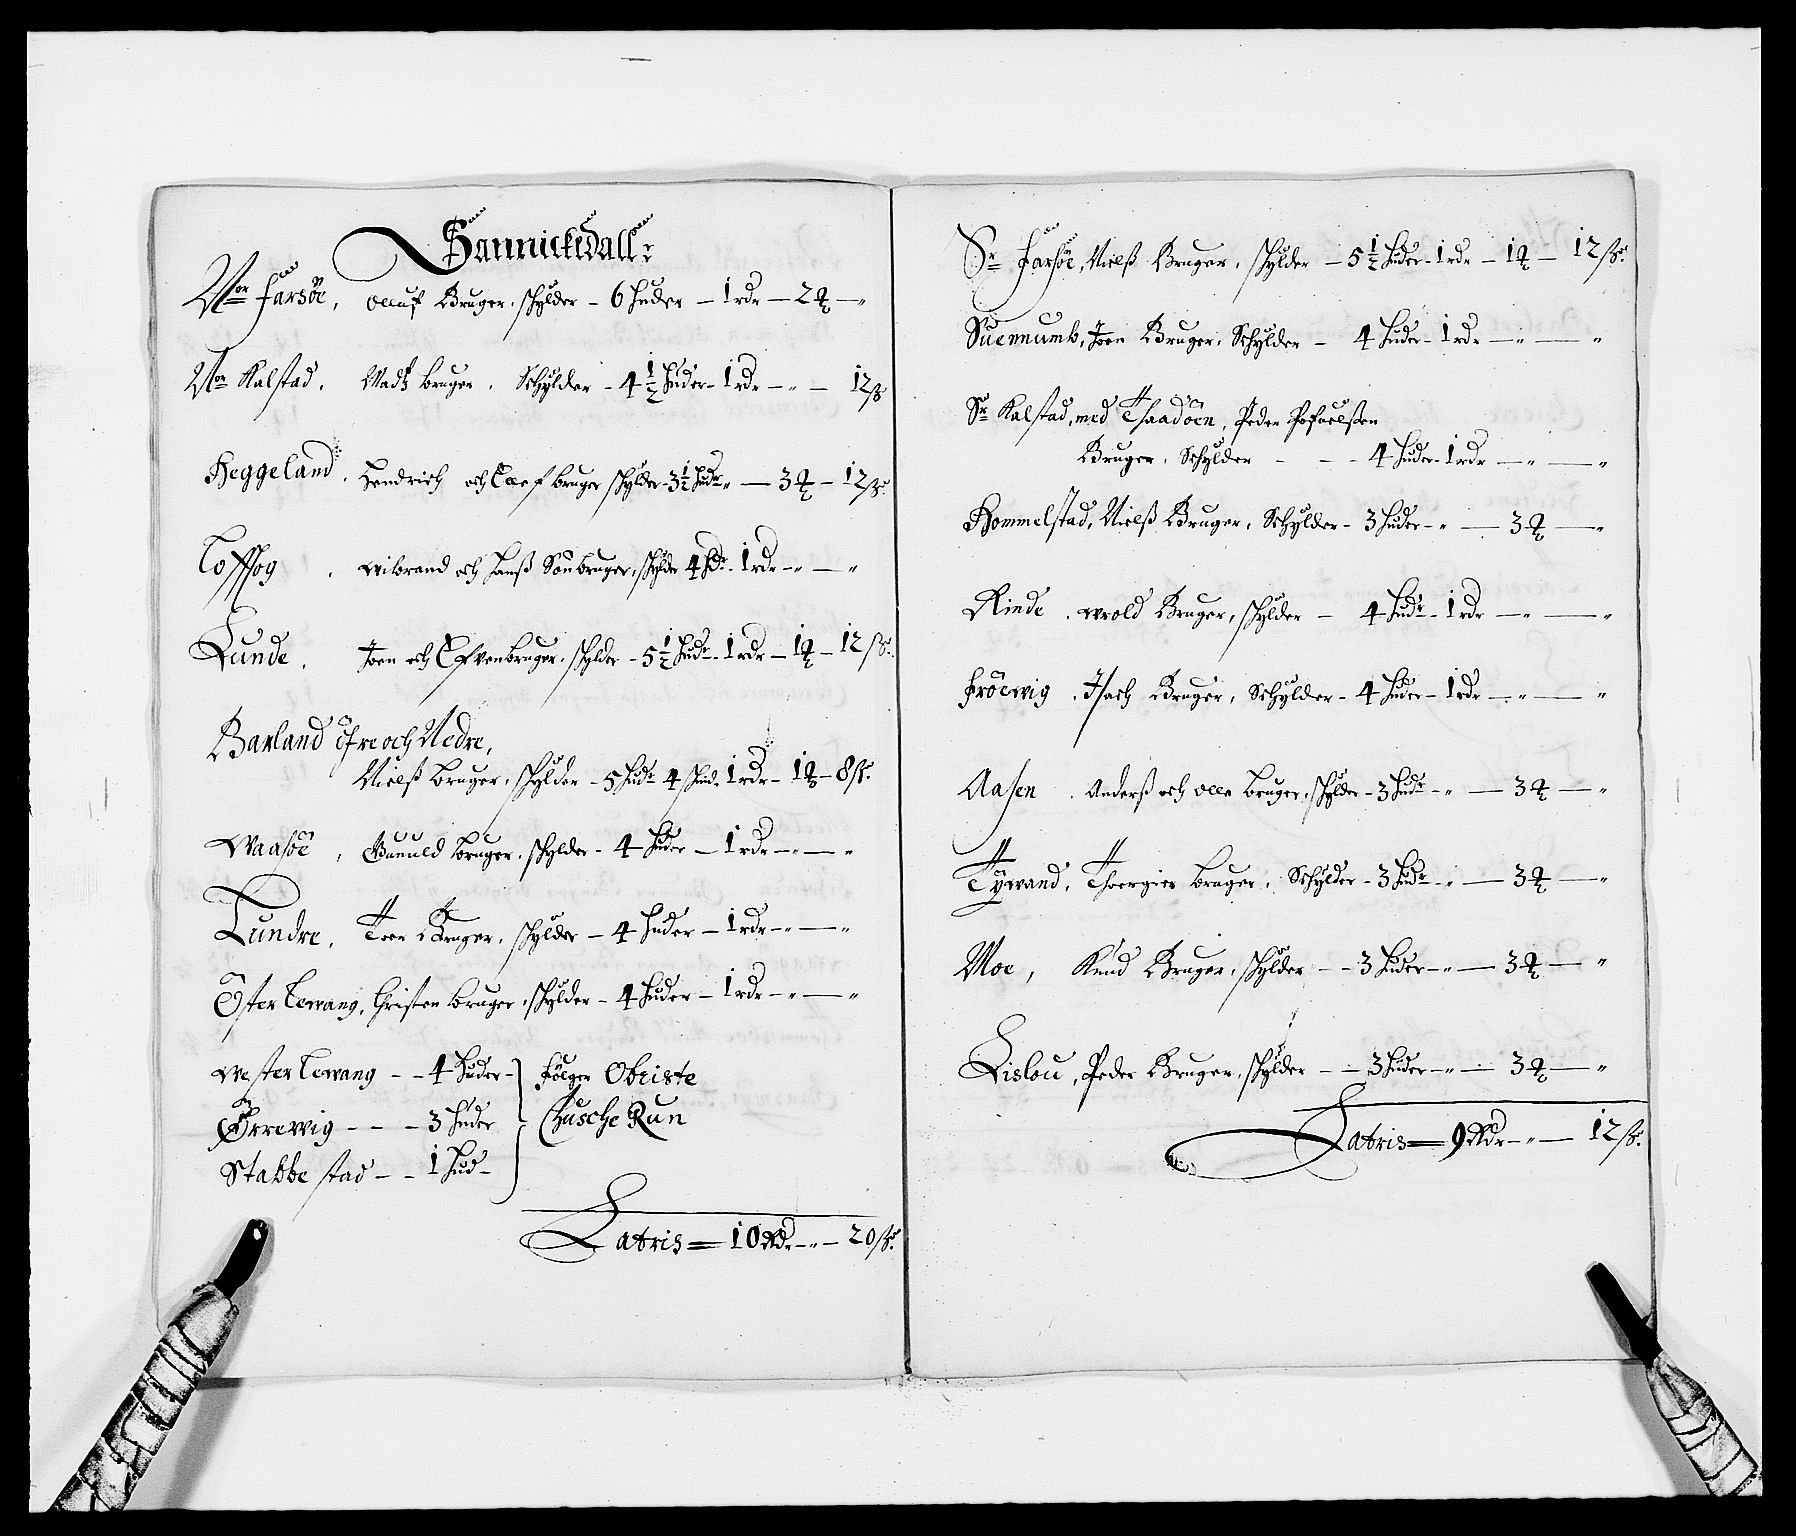 Sannickedall
Nor farsöe, Olluf Bruger, schylder – 6 huder – 1 rdr – 2 ꝗ – "
Nor Kalstad, Madtz bruger, Schylder – 4 ½ huder – 1 rdr – " – 12 ß
Heggeland, Hendrich och Olef bruger schylder – 3 ½ hudr " – 3 ꝗ – 12 ß
wibrand och Hanß Sön bruger, schylder 4 hdr – 1 rdr – " – "
Lunde, Joen och bruger, schylder – 5 ½ hudr – 1 rdr – 1 ꝗ – 12 ß
Barland öfre och Nedre,
Nielß bruger, schylder – 5 hudr 4 schind – 1 rdr – 1 ꝗ – 8 ß
Waasöe, Gunuld bruger, schylder – 4 huder – 1 rdr – " – "
Lundre, Toer Bruger, schylder – 4 huder – 1 rdr – " – "
Öster Tewang, Christen bruger, schylder – 4 huder – 1 rdr – " – "
Wester Tewang – – 4 huder – fölger Obriste
Örrewig – – – 3 huder Chusche Run
Stabbestad – – 1 hud –
Latris = 10 Rdr – " – 20 ß
Sr farsöe, Nielß Bruger, schylder – 5 ½ huder – 1 rdr – 1 ꝗ – 12 ß
Suennumb, Joen Bruger, Schylder – 4 huder – 1 rdr – " – "
Sr Kalstad, med Thaadöen, Peder
Bruger, Schylder – – – 4 huder – 1 rdr – " – "
Hommelstad, Nielß Bruger, Schylder – 3 huder – " – 3 ꝗ – "
Rinde, wrold Bruger, schylder – 4 hudr – 1 rdr – " – "
fröewig, Isach Bruger, Schylder – 4 huder – 1 rdr – " – "
Aasen, Anderß och Olle bruger, schylder – 3 hudr – " – 3 ꝗ – "
Tÿwand, Thoergier bruger, Schylder – 3 hudr – " – 3 ꝗ – "
Moe, Knud Bruger, schylder – – 3 huder – " – 3 ꝗ – "
Lislou, Peder Bruger, schylder – – 3 huder – " – 3 ꝗ – "
Latris = 9 Rdr – " – 12 ß